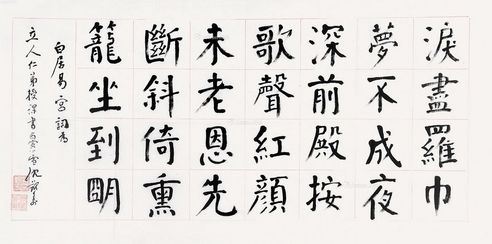 淚盡羅巾
夢不成夜
深前殿按
歌聲紅顏
未老恩先
斷斜倚熏
籠坐到明
白居易宮詞為
立人仁弟授課書